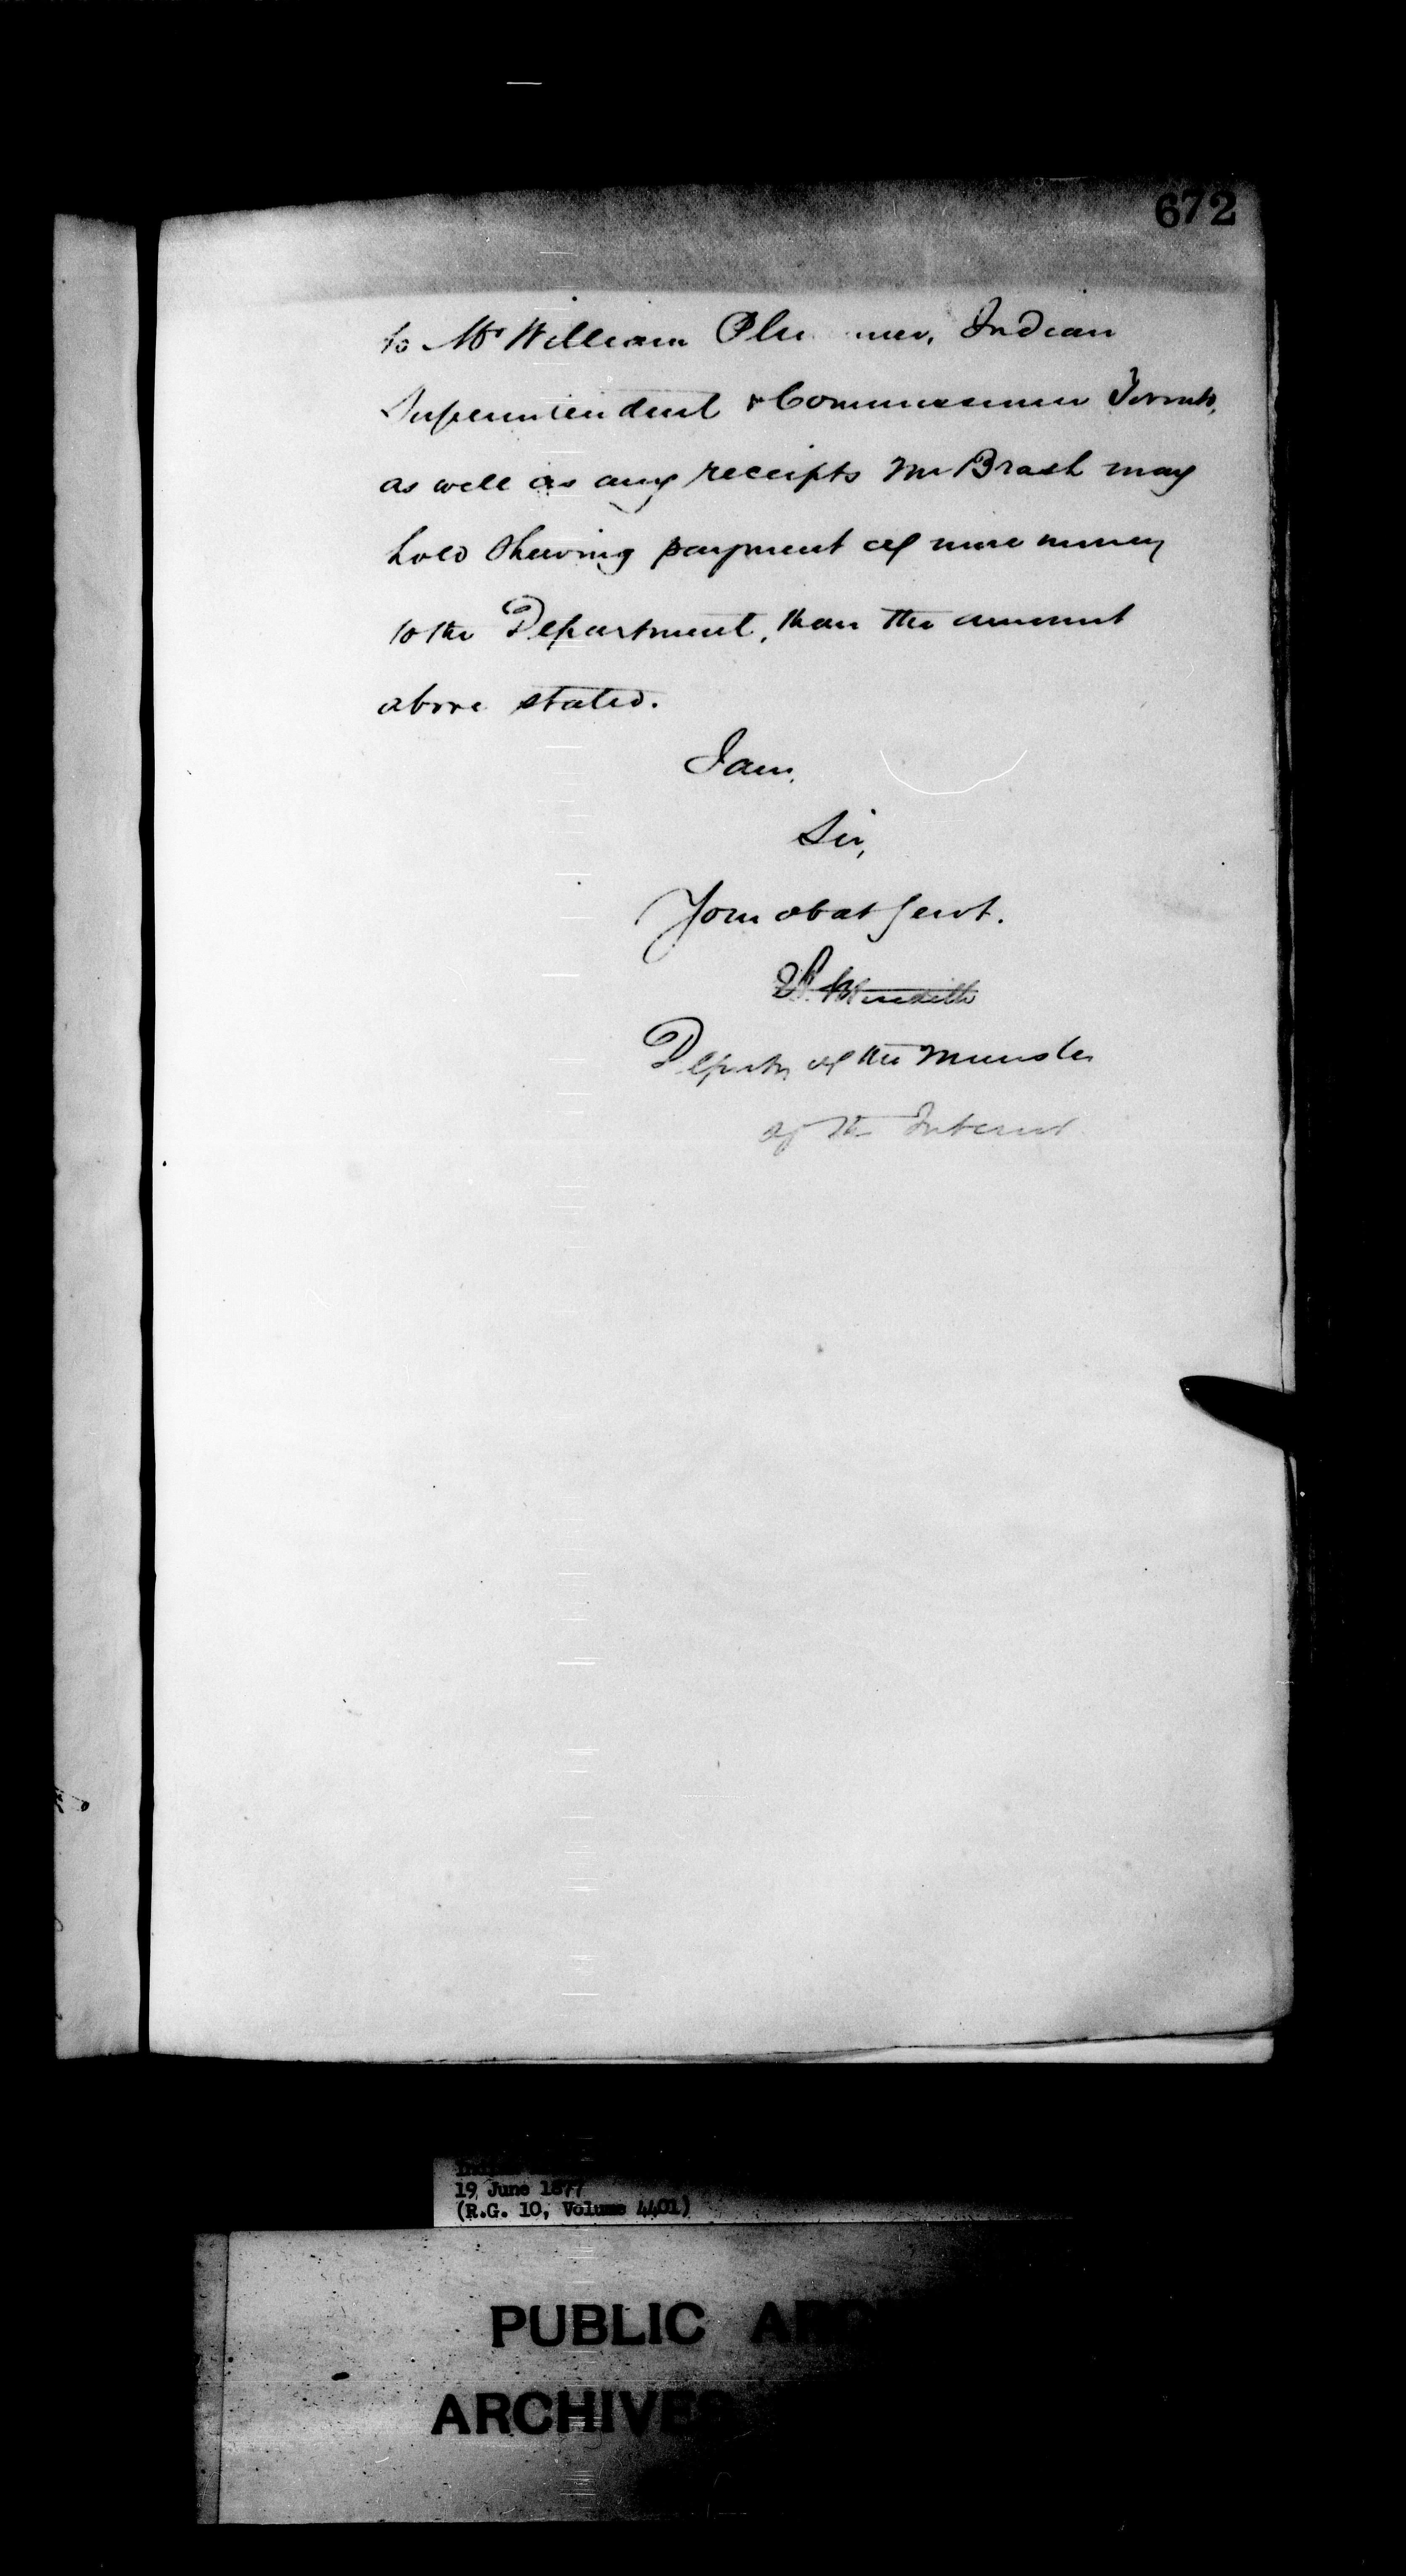 672
to Mr William Plummer, Indian
Superintendent & Commissioner Toronto,
as well as any receipts Mr Brash may
hold shewing payment of more money
to the Department, than the amount
above stated.
I am,
Sir,
Your obdt Servt.
Meredith
Deputy of the Minister
of the Interior
19 June 1877
(R.G. 10, Volume 4401)
PUBLIC
ARCHIVES